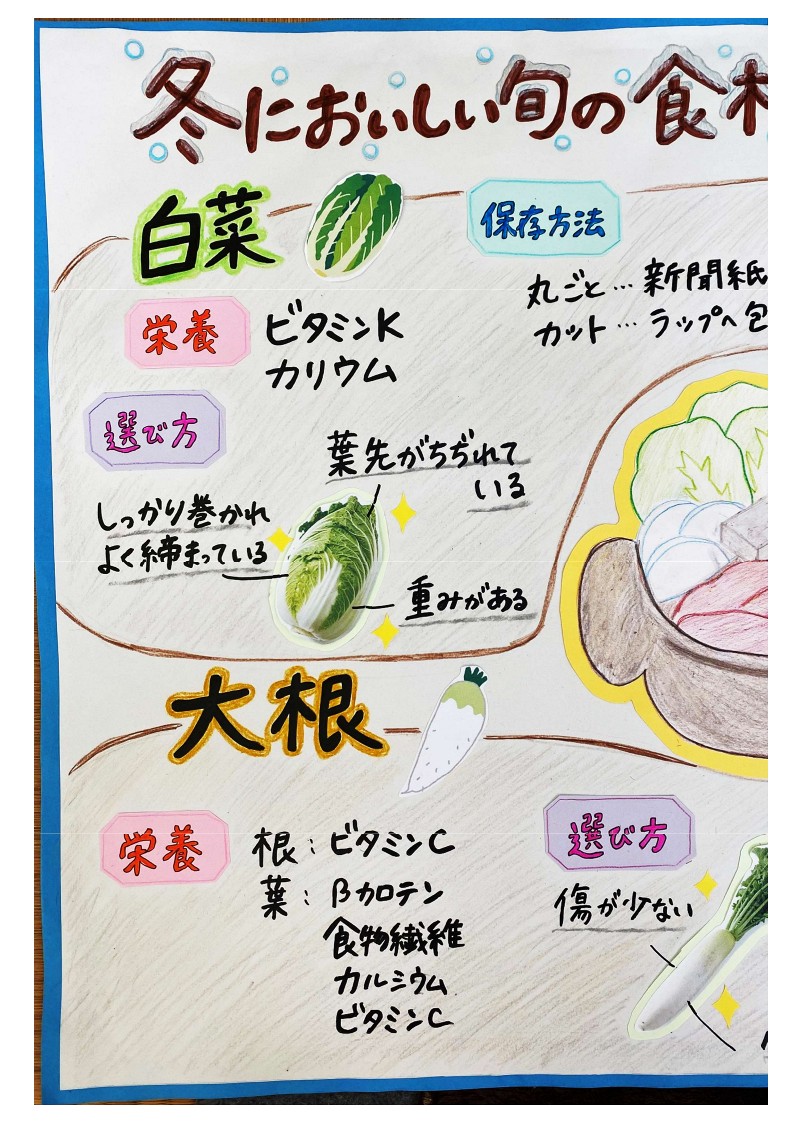 冬においしい旬の食材
白菜
保存方法
丸ごと…新聞紙
カット…ラップへ包
栄養
ビタミンK
カリウム
選び方
葉先がちぢれて
いる
しっかり巻かれ
よく締まっている
重みがある
大根
栄養
根:ビタミンC
葉:βカロテン
食物繊維
カルシウム
ビタミンC
選び方
傷が少ない